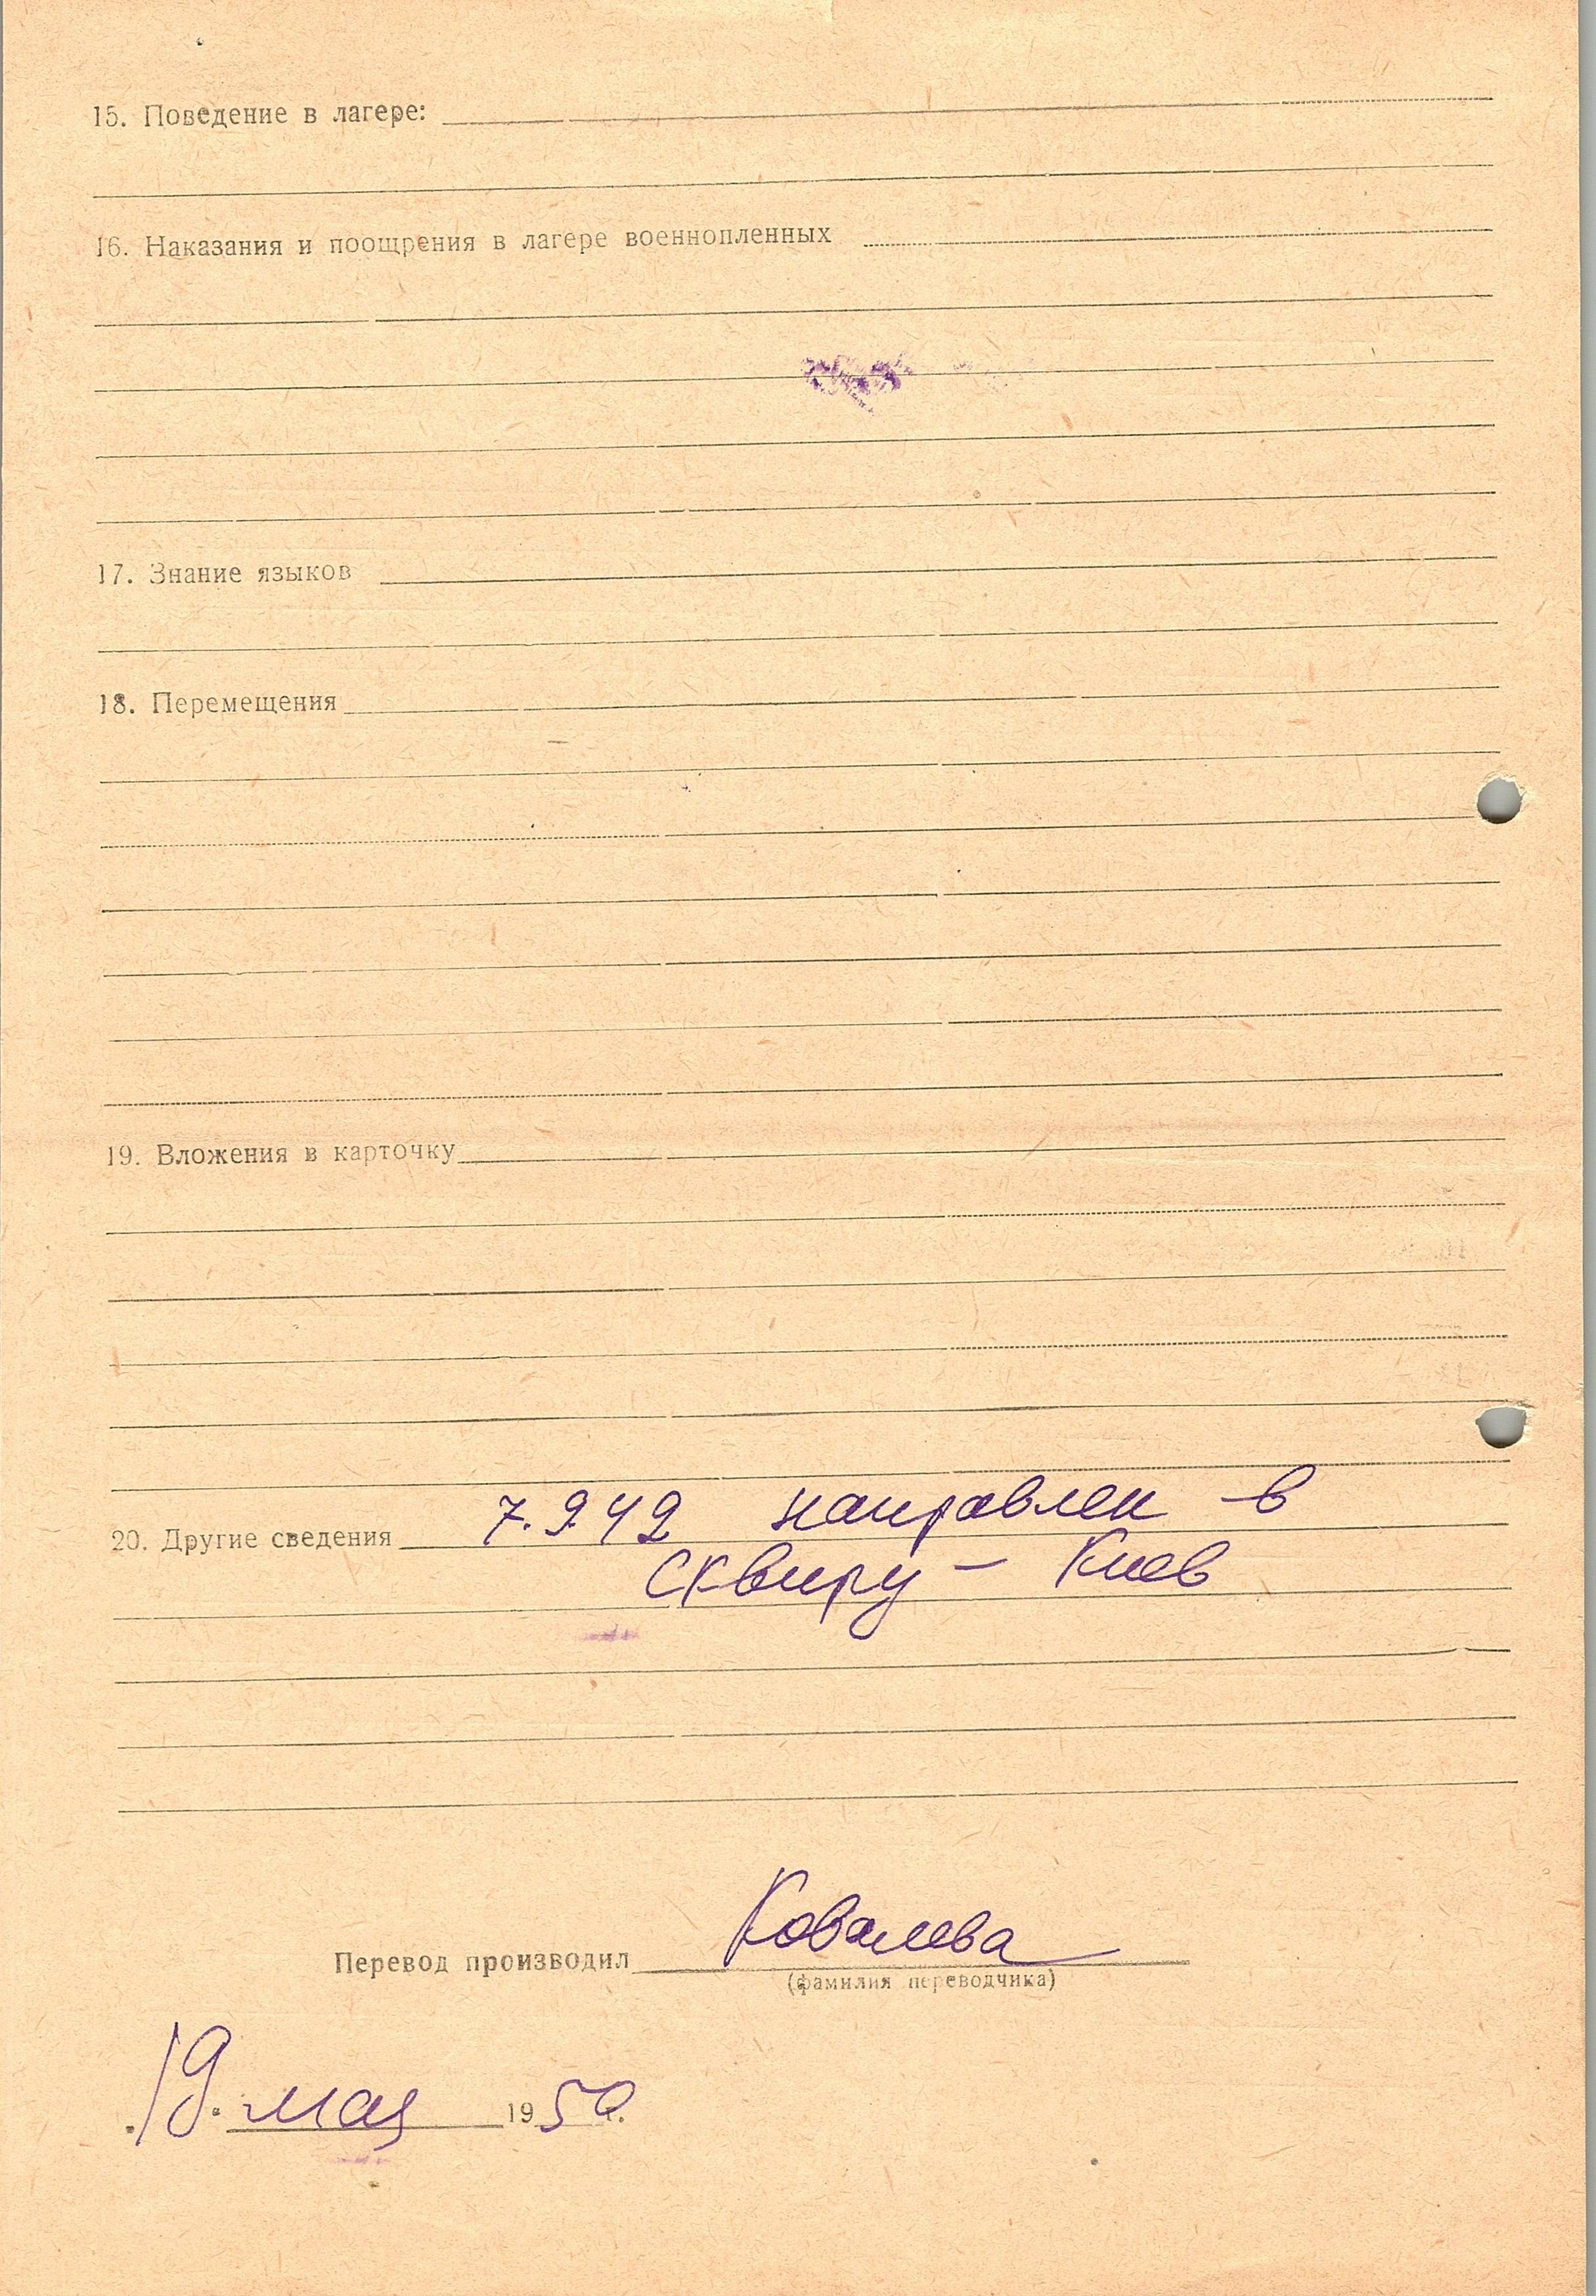 15. Поведение в лагере:
16. Наказания и поощрения в лагере военнопленных
17. Знание языков
18. Перемещения
19. Вложения в карточку
20. Другие сведения 7.9.42 направлен в
Сквиру – Киев
Перевод производил Ковалева
(фамилия переводчика)
19. мая 1950 г.